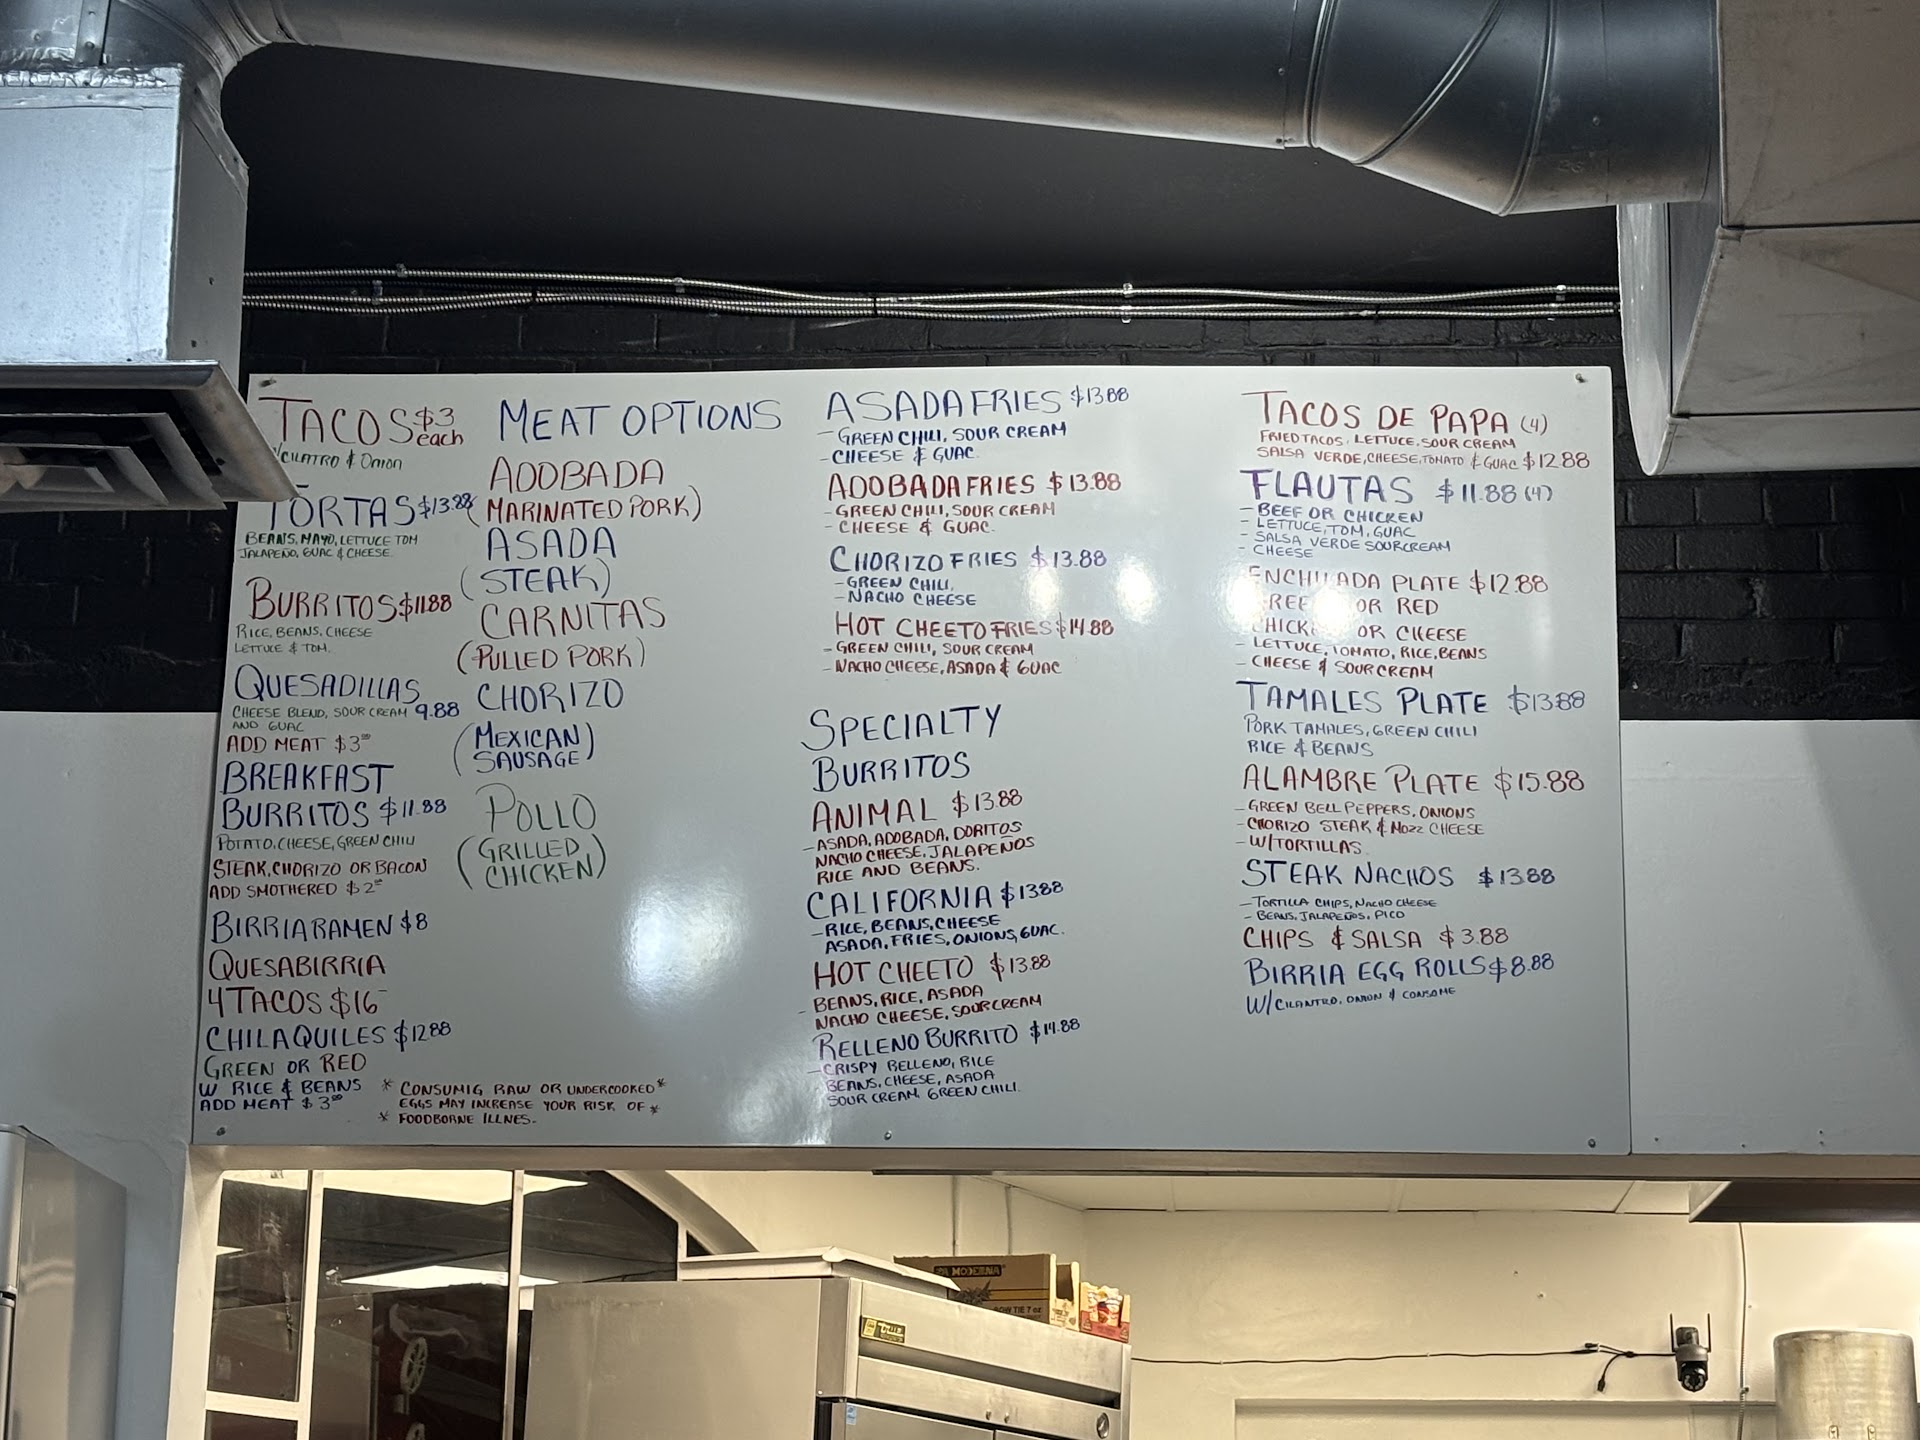 TACOS $3 each
W/CILATRO & ONION
TORTAS $13.88
BEANS, MAYO, LETTUCE TOM
JALAPEÑO, GUAC & CHEESE
BURRITOS $11.88
RICE, BEANS, CHEESE
LETTUCE & TOM.
QUESADILLAS
CHEESE BLEND, SOUR CREAM 9.88
AND GUAC
ADD MEAT $3.00
BREAKFAST
BURRITOS $11.88
POTATO, CHEESE, GREEN CHILI
STEAK, CHORIZO OR BACON
ADD SMOTHERED $2.00
BIRRIA RAMEN $8
QUESABIRRIA
4 TACOS $16
CHILAQUILES $12.88
GREEN OR RED
W RICE & BEANS
ADD MEAT $3.00
MEAT OPTIONS
ADOBADA
(MARINATED PORK)
ASADA
(STEAK)
CARNITAS
(PULLED PORK)
CHORIZO
(MEXICAN
SAUSAGE)
POLLO
(GRILLED
CHICKEN)
* CONSUMIG RAW OR UNDERCOOKED *
EGGS MAY INCREASE YOUR RISK OF *
* FOODBORNE ILLNES.
ASADA FRIES $13.88
- GREEN CHILI, SOUR CREAM
- CHEESE & GUAC
ADOBADA FRIES $13.88
- GREEN CHILI, SOUR CREAM
- CHEESE & GUAC.
CHORIZO FRIES $13.88
- GREEN CHILI,
- NACHO CHEESE
HOT CHEETO FRIES $14.88
- GREEN CHILI, SOUR CREAM
- NACHO CHEESE, ASADA & GUAC
SPECIALTY
BURRITOS
ANIMAL $13.88
- ASADA, ADOBADA, DORITOS
NACHO CHEESE, JALAPEÑOS
RICE AND BEANS.
CALIFORNIA $13.88
- RICE, BEANS, CHEESE
ASADA, FRIES, ONIONS, GUAC.
HOT CHEETO $13.88
BEANS, RICE, ASADA
- NACHO CHEESE, SOUR CREAM
RELLENO BURRITO $14.88
- CRISPY RELLENO, RICE
BEANS, CHEESE, ASADA
SOUR CREAM, GREEN CHILI.
TACOS DE PAPA (4)
FRIED TACOS, LETTUCE, SOUR CREAM
SALSA VERDE, CHEESE, TOMATO & GUAC $12.88
FLAUTAS $11.88 (4)
- BEEF OR CHICKEN
- LETTUCE, TOM, GUAC
- SALSA VERDE SOUR CREAM
- CHEESE
ENCHILADA PLATE $12.88
GREEN OR RED
CHICKEN OR CHEESE
- LETTUCE, TOMATO, RICE, BEANS
- CHEESE & SOUR CREAM
TAMALES PLATE $13.88
PORK TAMALES, GREEN CHILI
RICE & BEANS
ALAMBRE PLATE $15.88
- GREEN BELL PEPPERS, ONIONS
- CHORIZO STEAK & MOZZ CHEESE
- W/TORTILLAS
STEAK NACHOS $13.88
- TORTILLA CHIPS, NACHO CHEESE
- BEANS, JALAPEÑOS, PICO
CHIPS & SALSA $3.88
BIRRIA EGG ROLLS $8.88
W/CILANTRO, ONION & CONSOME
LA MODERNA
BOW TIE 7 oz